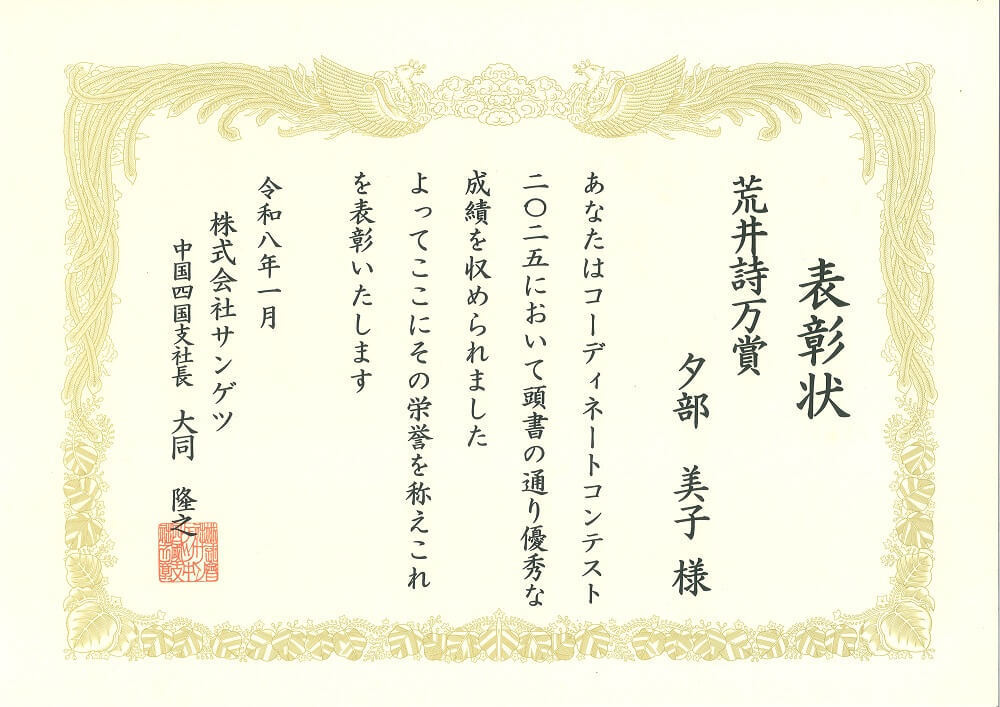 表彰状
荒井詩万賞
夕部 美子 様
あなたはコーディネートコンテスト
二〇二五において頭書の通り優秀な
成績を収められました
よってここにその栄誉を称えこれ
を表彰いたします
令和八年一月
株式会社サンゲツ
中国四国支社長 大同 隆之